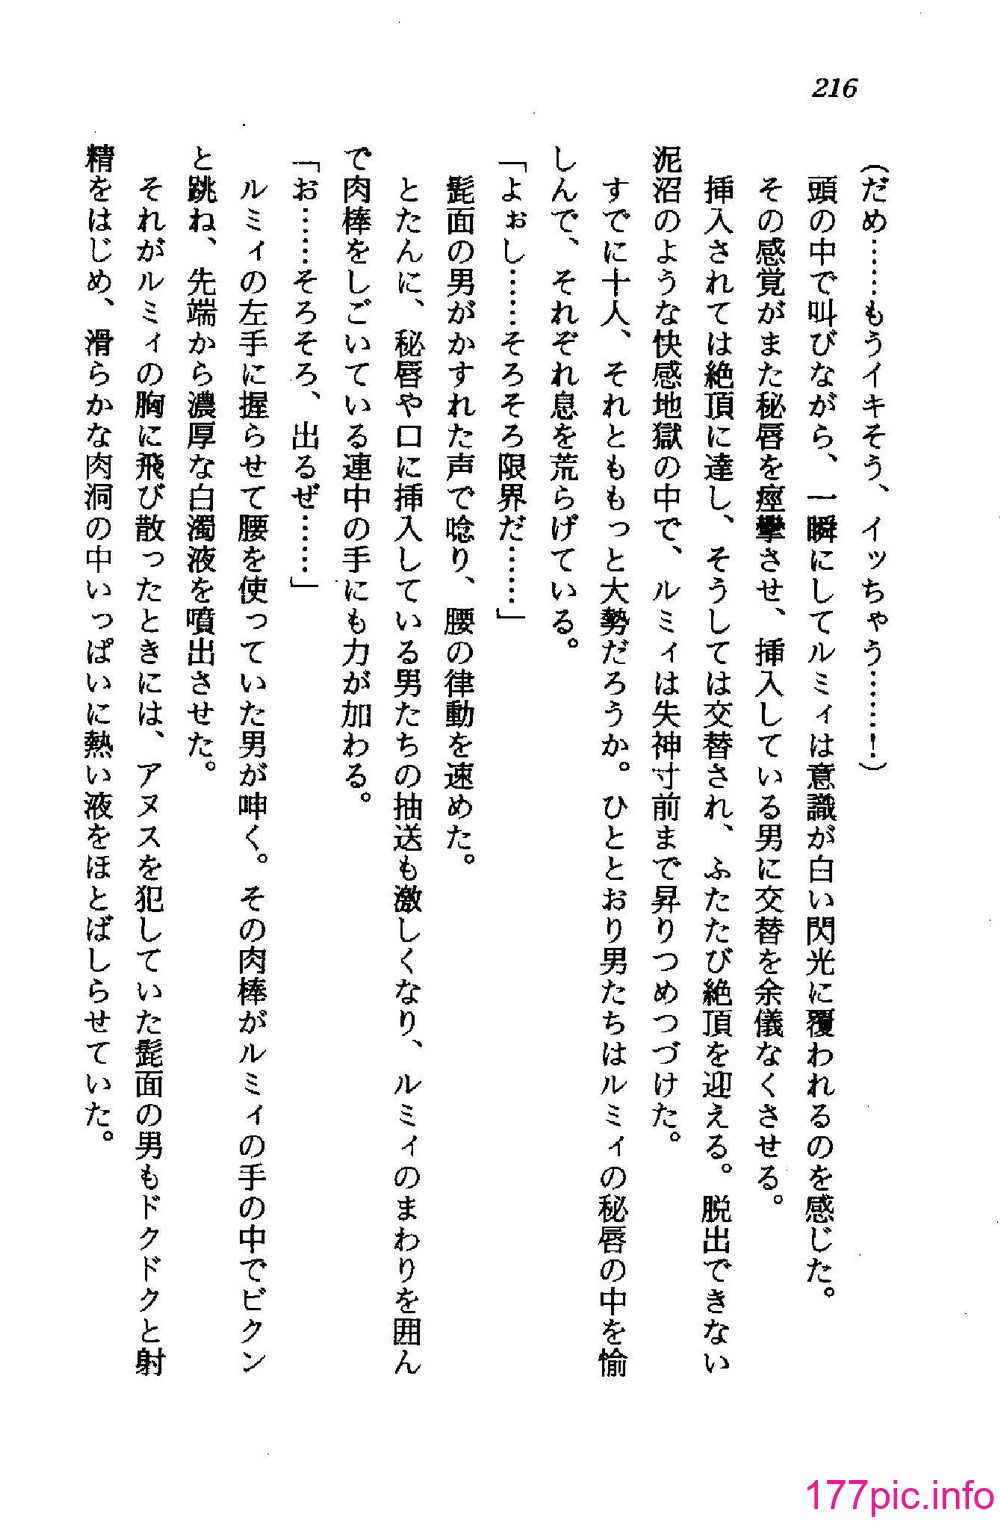 216
（だめ……もうイキそう、イッちゃう……！）
頭の中で叫びながら、一瞬にしてルミィは意識が白い閃光に覆われるのを感じた。
その感覚がまた秘唇を痙攣させ、挿入している男に交替を余儀なくさせる。
挿入されては絶頂に達し、そうしては交替され、ふたたび絶頂を迎える。脱出できない
泥沼のような快感地獄の中で、ルミィは失神寸前まで昇りつめつづけた。
すでに十人、それとももっと大勢だろうか。ひととおり男たちはルミィの秘唇の中を愉
しんで、それぞれ息を荒らげている。
「よぉし……そろそろ限界だ……」
髭面の男がかすれた声で唸り、腰の律動を速めた。
とたんに、秘唇や口に挿入している男たちの抽送も激しくなり、ルミィのまわりを囲ん
で肉棒をしごいている連中の手にも力が加わる。
「お……そろそろ、出るぜ……」
ルミィの左手に握らせて腰を使っていた男が呻く。その肉棒がルミィの手の中でビクン
と跳ね、先端から濃厚な白濁液を噴出させた。
それがルミィの胸に飛び散ったときには、アヌスを犯していた髭面の男もドクドクと射
精をはじめ、滑らかな肉洞の中いっぱいに熱い液をほとばしらせていた。
177pic.info